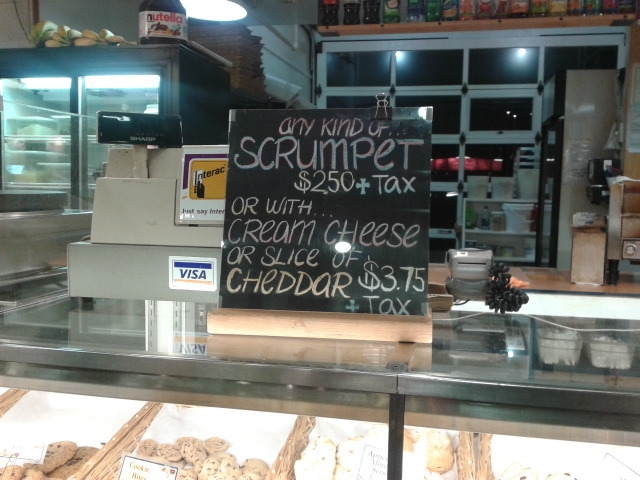 nutella
SHARP
Interac
Just say Inter
VISA
any KIND OF...
SCRUMPET
$2.50 + Tax
OR WITH...
CREAM CHEESE
OR SLICE OF
CHEDDAR $3.75
+ Tax
VISA
Cookie
Bites
Apricot
Almond